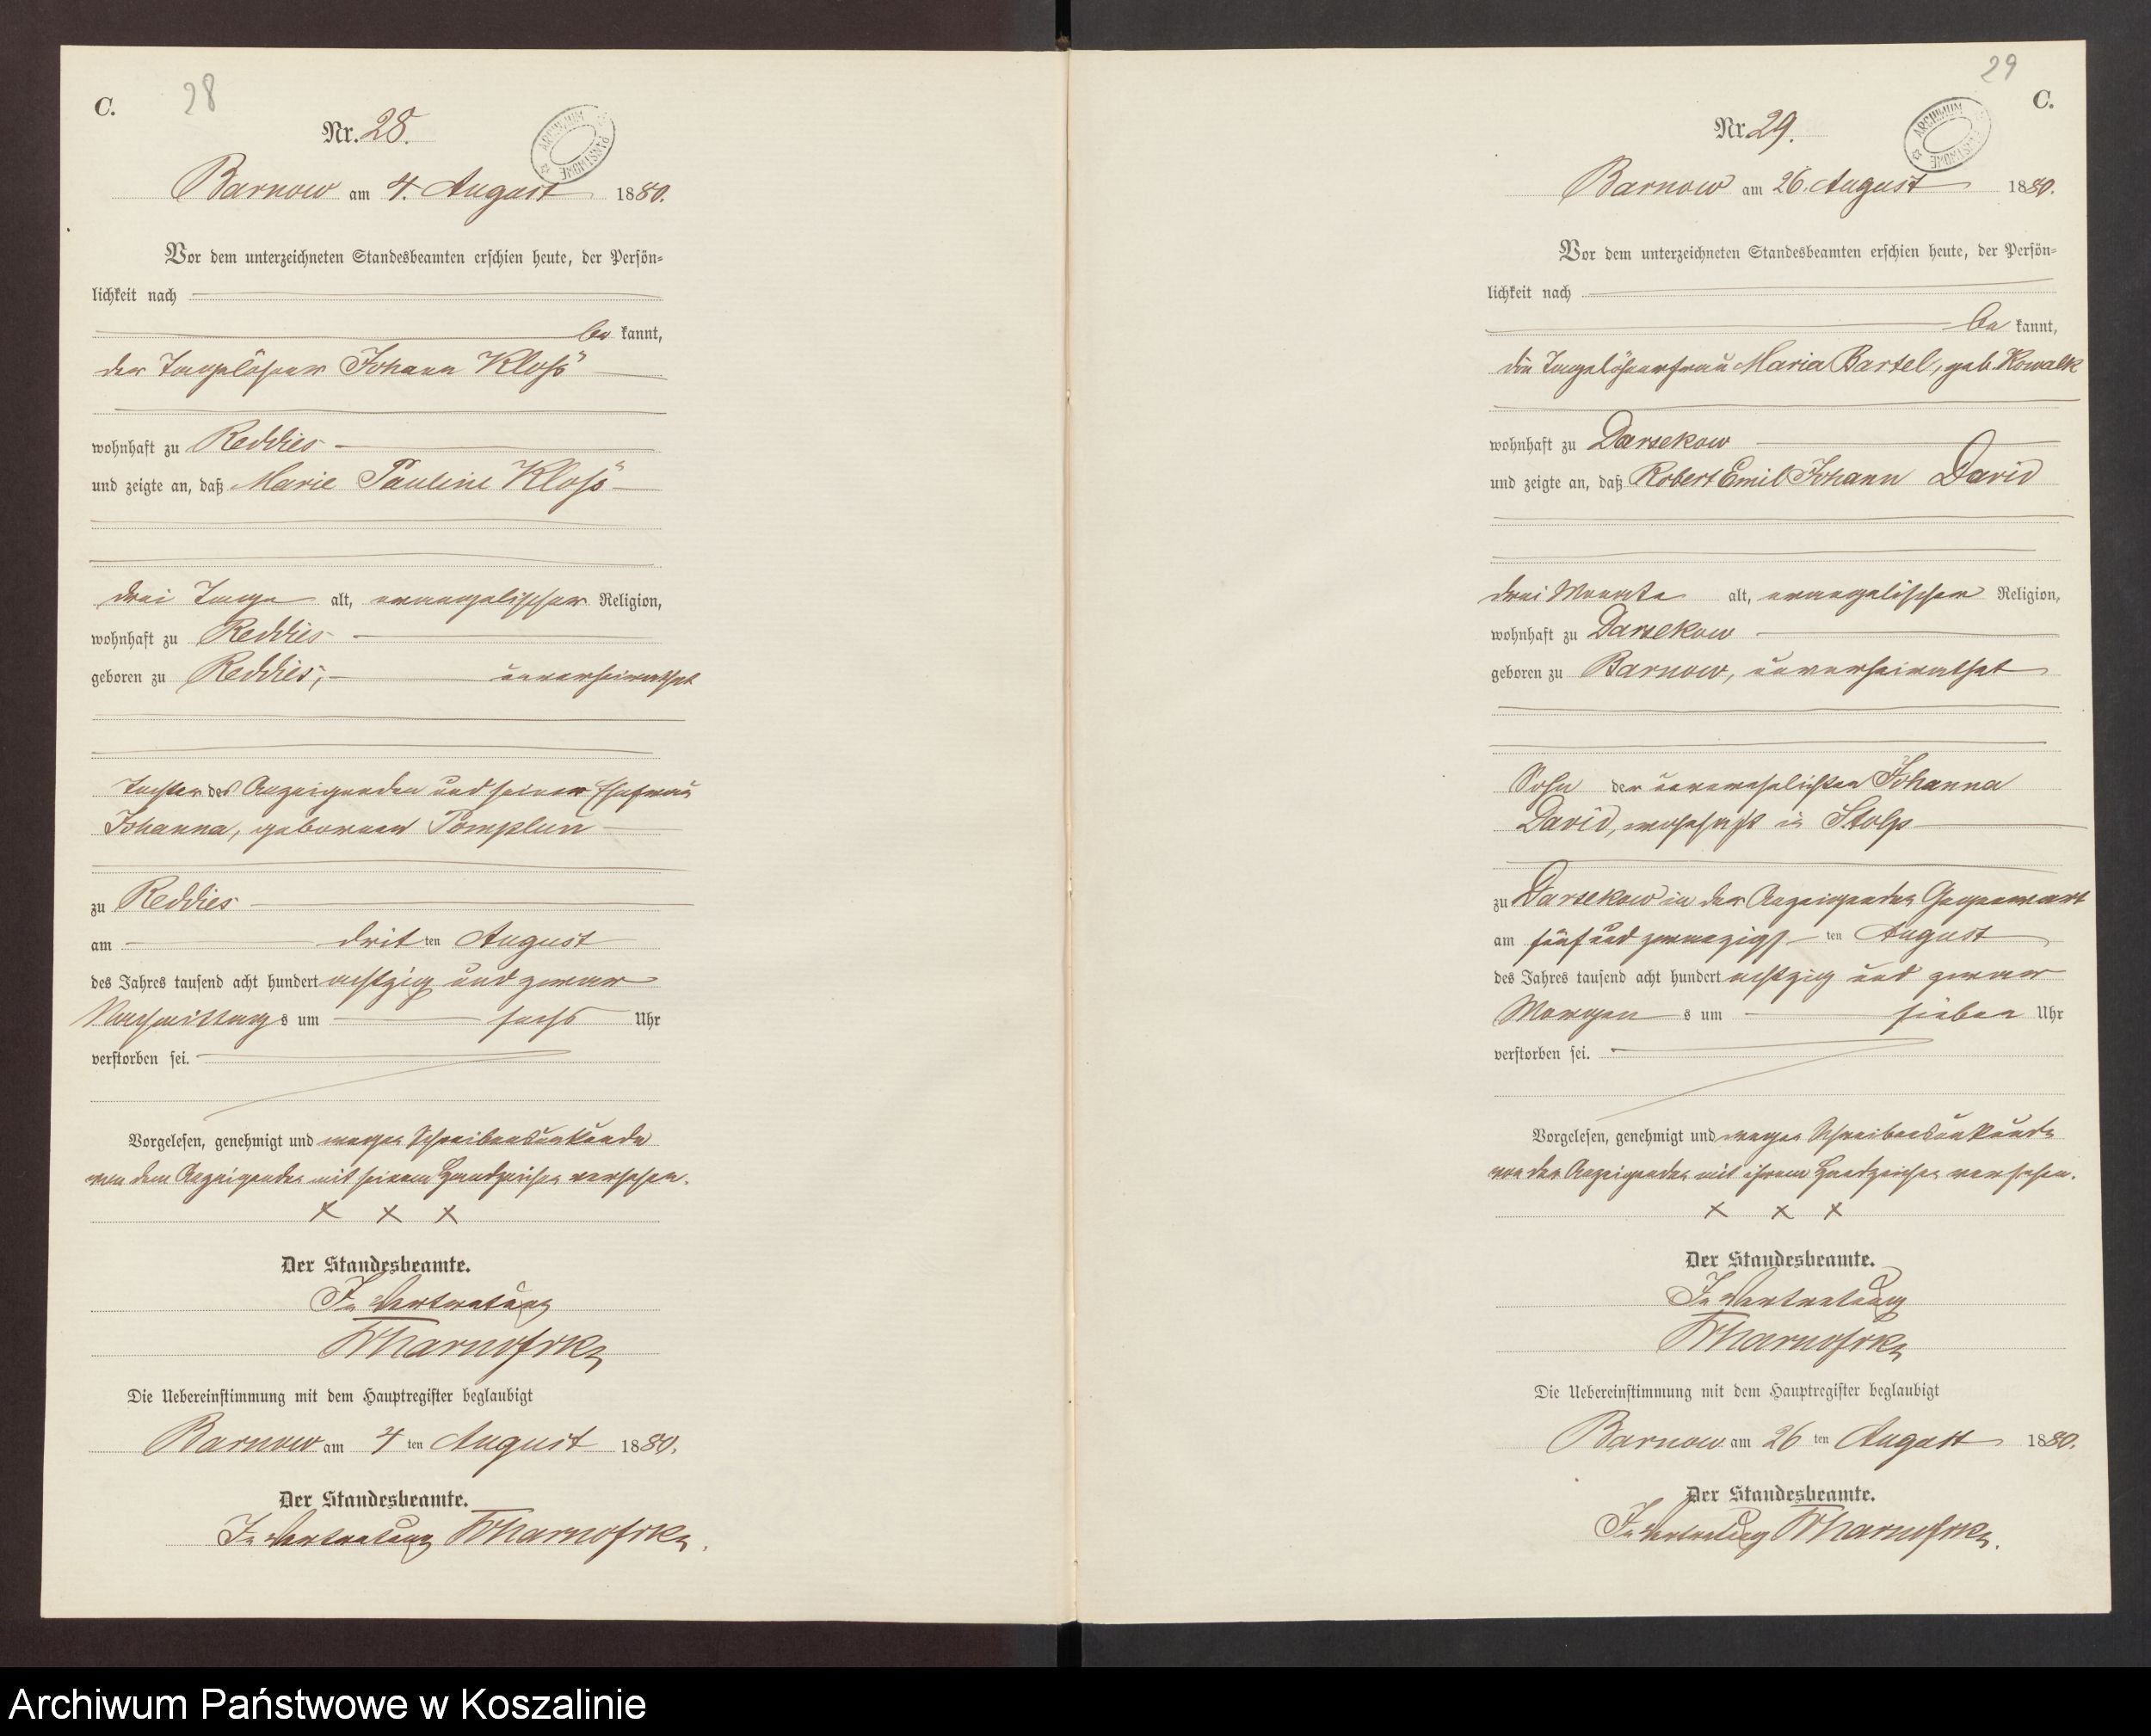 C.
28
Nr. 28.
ARCHIWUM PAŃSTWOWE
Barnow am 4. August 1880.
Vor dem unterzeichneten Standesbeamten erschien heute, der Persön-
lichkeit nach
be kannt,
der Tagelöhner Johann Kloß
wohnhaft zu Reddies
und zeigte an, daß Marie Pauline Kloß
drei Tage alt, evangelischer Religion,
wohnhaft zu Reddies
geboren zu Reddies, unverheirathet
Tochter des Anzeigenden und seiner Ehefrau
Johanna, geborenen Pomplun
zu Reddies
am dritten August
des Jahres tausend acht hundert achtzig und zwar
Nachmittags um sechs Uhr
verstorben sei.
Vorgelesen, genehmigt und wegen Schreibensunkunde
von dem Anzeigenden mit seinem Handzeichen versehen.
x x x
Der Standesbeamte.
In Vertretung
Die Uebereinstimmung mit dem Hauptregister beglaubigt
Barnow am 4 ten August 1880.
Der Standesbeamte.
In Vertretung
29
C.
Nr. 29.
ARCHIWUM PAŃSTWOWE
Barnow am 26. August 1880.
Vor dem unterzeichneten Standesbeamten erschien heute, der Persön-
lichkeit nach
be kannt,
die Tagelöhnerfrau Maria Bartel, geb. Kowalk
wohnhaft zu Darsekow
und zeigte an, daß Robert Emil Johann David
drei Monate alt, evangelischer Religion,
wohnhaft zu Darsekow
geboren zu Barnow, unverheirathet
Sohn der unverehelichten Johanna
David, wohnhaft in Stolp
zu Darsekow in der Anzeigenden Gegenwart
am fünf und zwanzigsten August
des Jahres tausend acht hundert achtzig und zwar
Morgens um sieben Uhr
verstorben sei.
Vorgelesen, genehmigt und wegen Schreibensunkunde
von der Anzeigenden mit ihrem Handzeichen versehen.
x x x
Der Standesbeamte.
In Vertretung
Die Uebereinstimmung mit dem Hauptregister beglaubigt
Barnow am 26 ten August 1880.
Der Standesbeamte.
In Vertretung
Archiwum Państwowe w Koszalinie